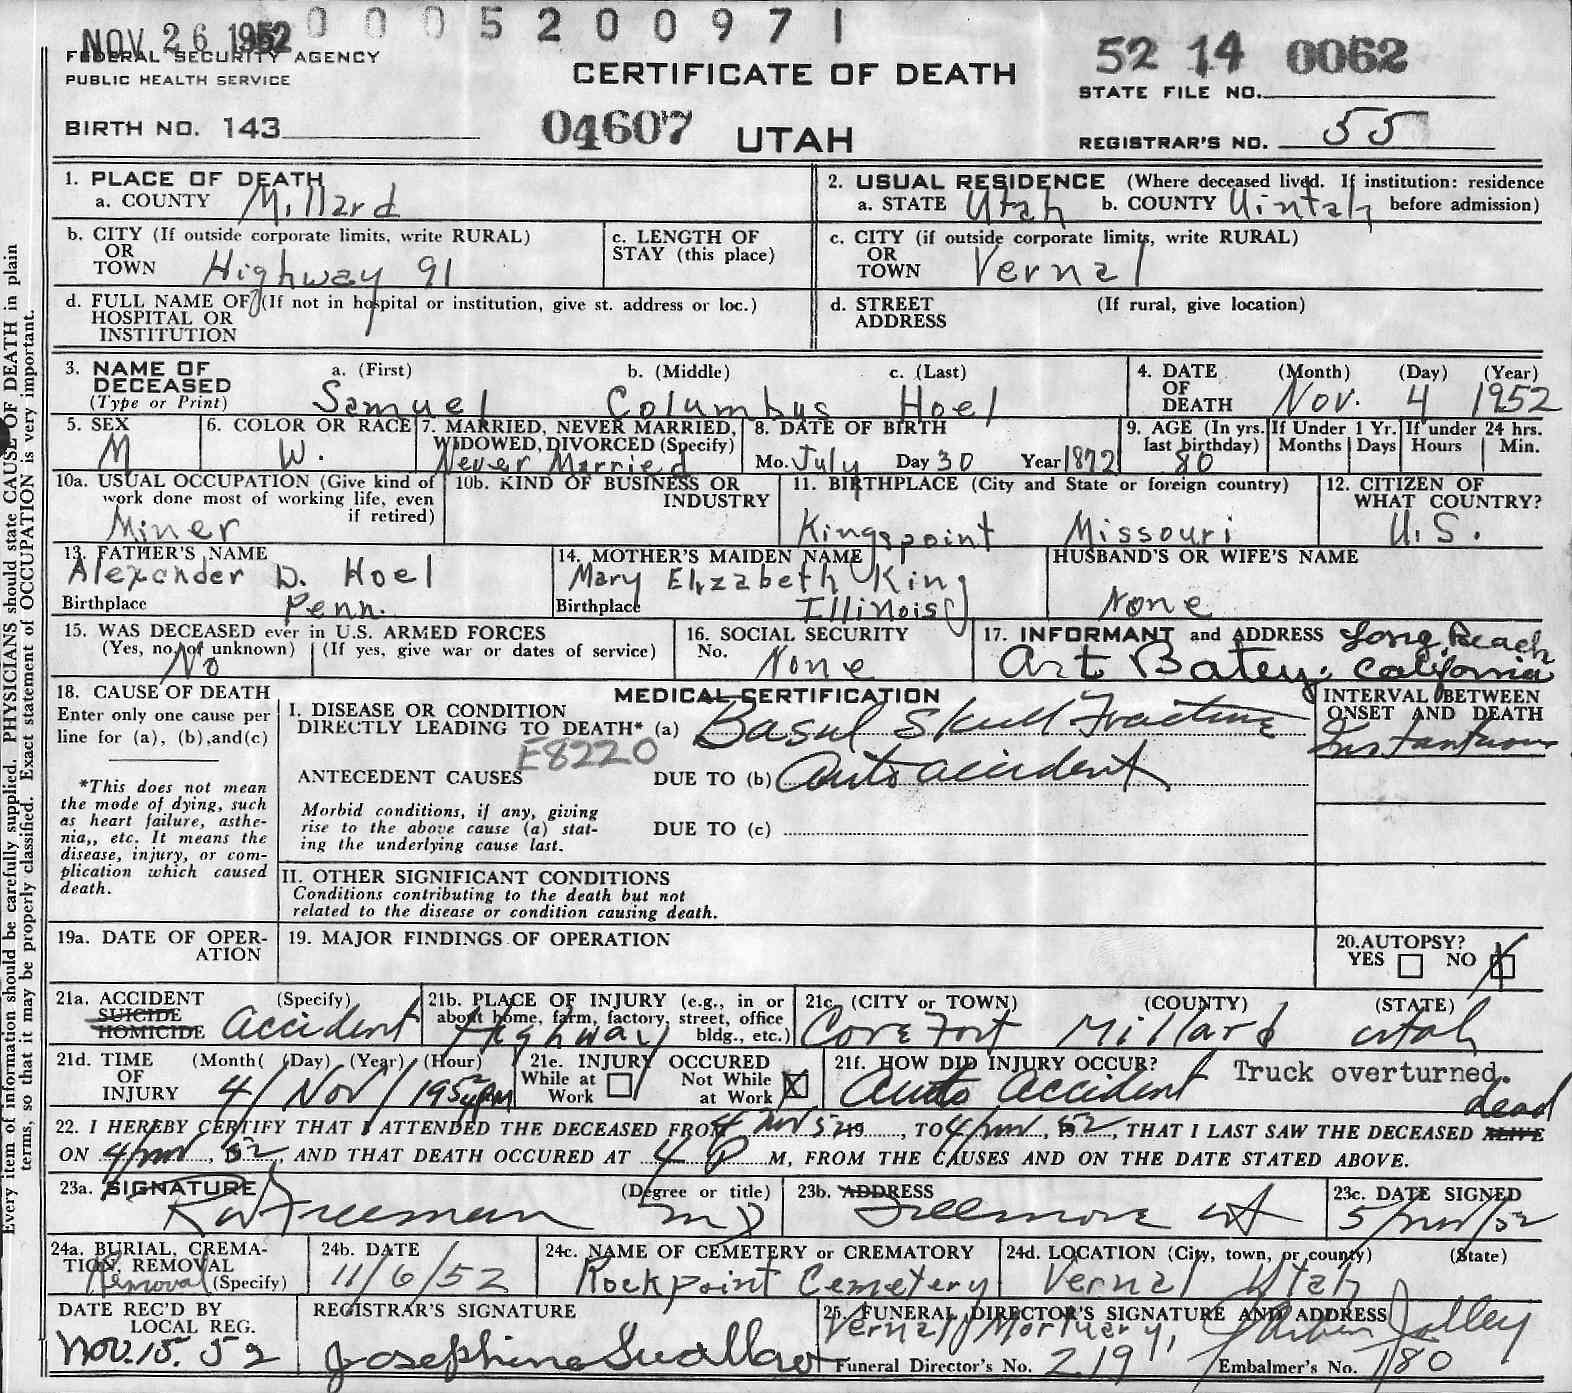 0005200971
NOV 26 1952
FEDERAL SECURITY AGENCY
PUBLIC HEALTH SERVICE
CERTIFICATE OF DEATH
52 14 0062
STATE FILE NO.
BIRTH NO. 143
04607 UTAH
REGISTRAR'S NO. 55
1. PLACE OF DEATH
a. COUNTY Millard
2. USUAL RESIDENCE (Where deceased lived. If institution: residence
a. STATE Utah b. COUNTY Uintah before admission)
b. CITY (If outside corporate limits, write RURAL)
OR
TOWN Highway 91
c. LENGTH OF
STAY (this place)
c. CITY (if outside corporate limits, write RURAL)
OR
TOWN Vernal
d. FULL NAME OF (If not in hospital or institution, give st. address or loc.)
HOSPITAL OR
INSTITUTION
d. STREET (If rural, give location)
ADDRESS
3. NAME OF DECEASED a. (First) b. (Middle) c. (Last)
(Type or Print) Samuel Columbus Hoel
4. DATE OF DEATH (Month) (Day) (Year)
Nov. 4 1952
5. SEX
M
6. COLOR OR RACE
W.
7. MARRIED, NEVER MARRIED,
WIDOWED, DIVORCED (Specify)
Never Married
8. DATE OF BIRTH
Mo. July Day 30 Year 1872
9. AGE (In yrs. last birthday)
80
If Under 1 Yr. Months Days
If under 24 hrs. Hours Min.
10a. USUAL OCCUPATION (Give kind of
work done most of working life, even
if retired)
Miner
10b. KIND OF BUSINESS OR
INDUSTRY
11. BIRTHPLACE (City and State or foreign country)
Kingspoint Missouri
12. CITIZEN OF
WHAT COUNTRY?
U.S.
13. FATHER'S NAME
Alexander D. Hoel
Birthplace Penn.
14. MOTHER'S MAIDEN NAME
Mary Elizabeth King
Birthplace Illinois
HUSBAND'S OR WIFE'S NAME
None
15. WAS DECEASED ever in U.S. ARMED FORCES
(Yes, no, of unknown) (If yes, give war or dates of service)
No
16. SOCIAL SECURITY
No. None
17. INFORMANT and ADDRESS Long Beach
Art Batey, California
18. CAUSE OF DEATH
Enter only one cause per
line for (a), (b),and(c)
*This does not mean
the mode of dying, such
as heart failure, asthe-
nia,, etc. It means the
disease, injury, or com-
plication which caused
death.
MEDICAL CERTIFICATION
I. DISEASE OR CONDITION
DIRECTLY LEADING TO DEATH* (a) Basul Skull Fracture
E8220
ANTECEDENT CAUSES DUE TO (b) Auto accident
Morbid conditions, if any, giving
rise to the above cause (a) stat-
ing the underlying cause last.
DUE TO (c)
INTERVAL BETWEEN
ONSET AND DEATH
II. OTHER SIGNIFICANT CONDITIONS
Conditions contributing to the death but not
related to the disease or condition causing death.
19a. DATE OF OPER-
ATION
19. MAJOR FINDINGS OF OPERATION
20. AUTOPSY?
YES NO X
21a. ACCIDENT (Specify)
SUICIDE
HOMICIDE Accident
21b. PLACE OF INJURY (e.g., in or
about home, farm, factory, street, office
bldg., etc.)
Highway
21c. (CITY or TOWN) (COUNTY) (STATE)
Cove Fort Millard Utah
21d. TIME OF INJURY (Month( (Day) (Year) (Hour)
4/Nov/1952 4pm
21e. INJURY OCCURED
While at Work Not While at Work X
21f. HOW DID INJURY OCCUR? Truck overturned.
Auto Accident
dead
22. I HEREBY CERTIFY THAT I ATTENDED THE DECEASED FROM 4 Nov 52 19, TO 4/nov, 52, THAT I LAST SAW THE DECEASED ALIVE
ON 4/nov, 52, AND THAT DEATH OCCURED AT 4 P M, FROM THE CAUSES AND ON THE DATE STATED ABOVE.
23a. SIGNATURE (Degree or title)
Freeman MD
23b. ADDRESS
Fillmore Ut
23c. DATE SIGNED
5/nov/52
24a. BURIAL, CREMA-
TION, REMOVAL
Removal (Specify)
24b. DATE
11/6/52
24c. NAME OF CEMETERY or CREMATORY
Rockpoint Cemetery
24d. LOCATION (City, town, or county) (State)
Vernal Utah
DATE REC'D BY
LOCAL REG.
Nov. 15. 52
REGISTRAR'S SIGNATURE
Josephine Swallow
25. FUNERAL DIRECTOR'S SIGNATURE AND ADDRESS
Vernal Mortuary, Jolley
Funeral Director's No. 219 Embalmer's No. 180
Every item of information should be carefully supplied. PHYSICIANS should state CAUSE OF DEATH in plain
terms, so that it may be properly classified. Exact statement of OCCUPATION is very important.